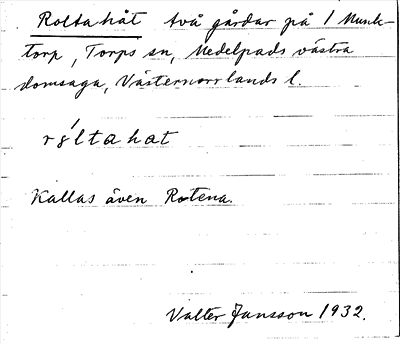 Roltahåt två gårdar på 1 Munk-
torp, Torps sn, Medelpads västra
domsaga, Västernorrlands l.
Kallas även Rotena.
Valter Jansson 1932.